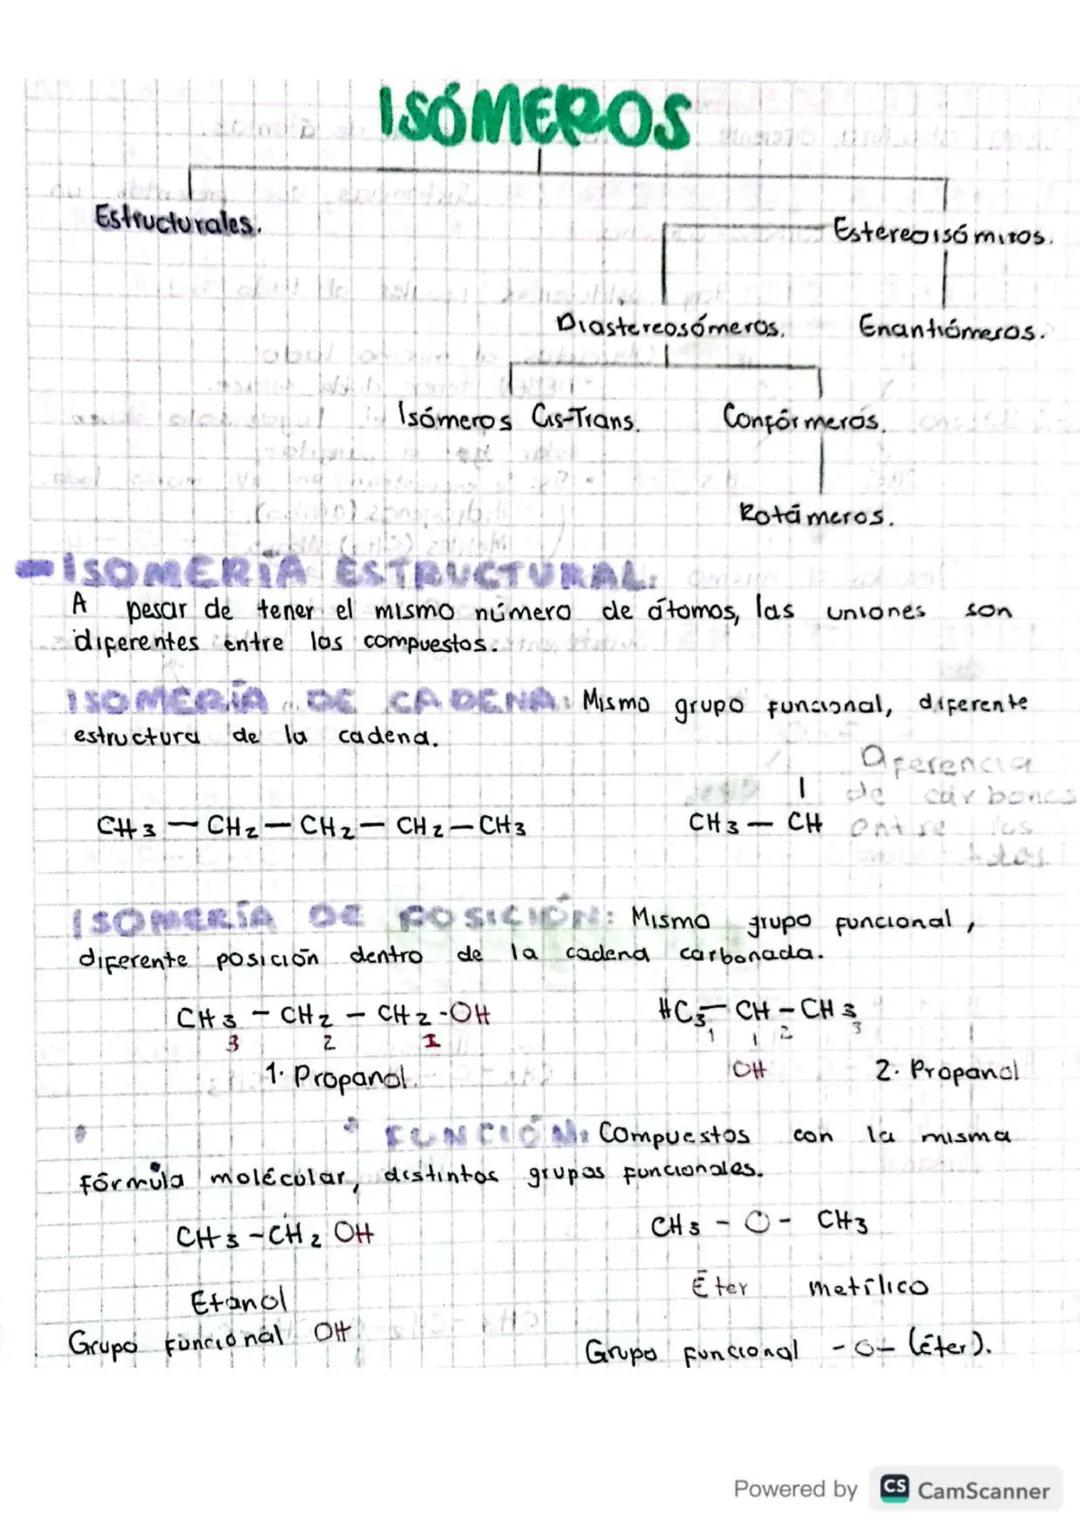 ISÓMEROS
Estructurales.
Estereoisómiros.
Diastereosómeros.
Enantiómeros.
Isómeros Cis-Trans.
Confórmeros.
Rotámeros.
ISOMERÍA ESTRUCTURAL:
A pesar de tener el mismo número de átomos, las uniones son
diferentes entre los compuestos.
ISOMERÍA DE CADENA: Mismo grupo funcional, diferente
estructura de la cadena.
Diferencia
de carbonos
entre los
CH3 — CH2 — CH2 — CH2 — CH3
CH3 — CH
ISOMERÍA DE POSICIÓN: Mismo grupo funcional,
diferente posición dentro de la cadena carbonada.
CH3 - CH2 - CH2 - OH
3 2 1
1. Propanol.
HC3 - CH - CH3
1 2 3
OH
2. Propanol
FUNCIÓN: Compuestos con la misma
fórmula molécular, distintos grupos funcionales.
CH3 - CH2 OH
CH3 - O - CH3
Etanol
Éter metílico
Grupo funcional OH
Grupo funcional - O - (éter).
Powered by CS CamScanner